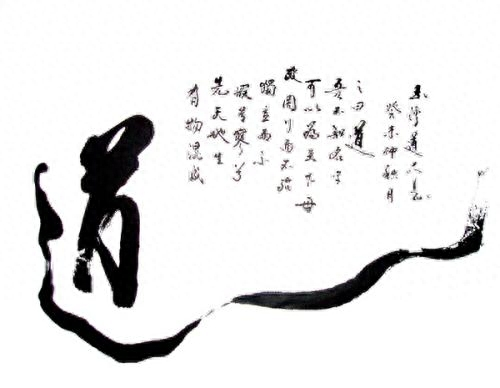 道
有物混成
先天地生
寂兮寥兮
獨立而不
改周行而不殆
可以為天下母
吾不知名字
之曰道
癸未仲秋月